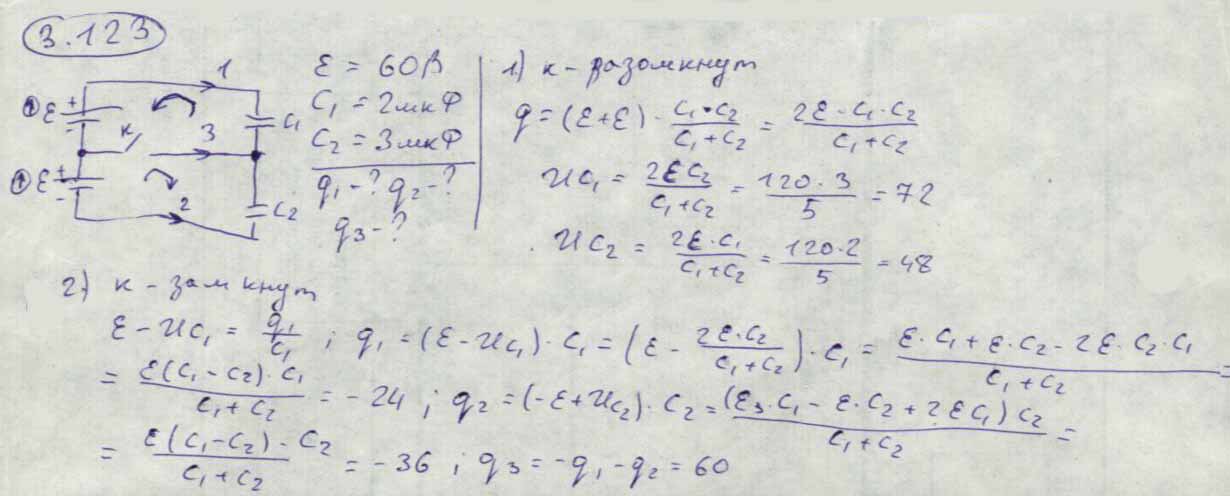 3.123
1
ε
+
-
C1
к
3
ε
+
-
2
C2
ε = 60В
C1 = 2мкФ
C2 = 3мкФ
q1-? q2-?
q3-?
1) к-разомкнут
q = (ε+ε) · C1·C2/(C1+C2) = 2ε·C1·C2/(C1+C2)
UC1 = 2εC2/(C1+C2) = 120·3/5 = 72
UC2 = 2ε·C1/(C1+C2) = 120·2/5 = 48
2) к-замкнут
ε - UC1 = q1/C1 ; q1 = (ε - UC1)·C1 = (ε - 2ε·C2/(C1+C2))·C1 = ε·C1+ε·C2-2ε·C2·C1/(C1+C2) =
= ε(C1-C2)·C1/(C1+C2) = -24 ; q2 = (-ε+UC2)·C2 = (ε3·C1-ε·C2+2εC1)C2/(C1+C2) =
= ε(C1-C2)·C2/(C1+C2) = -36 ; q3 = -q1-q2 = 60